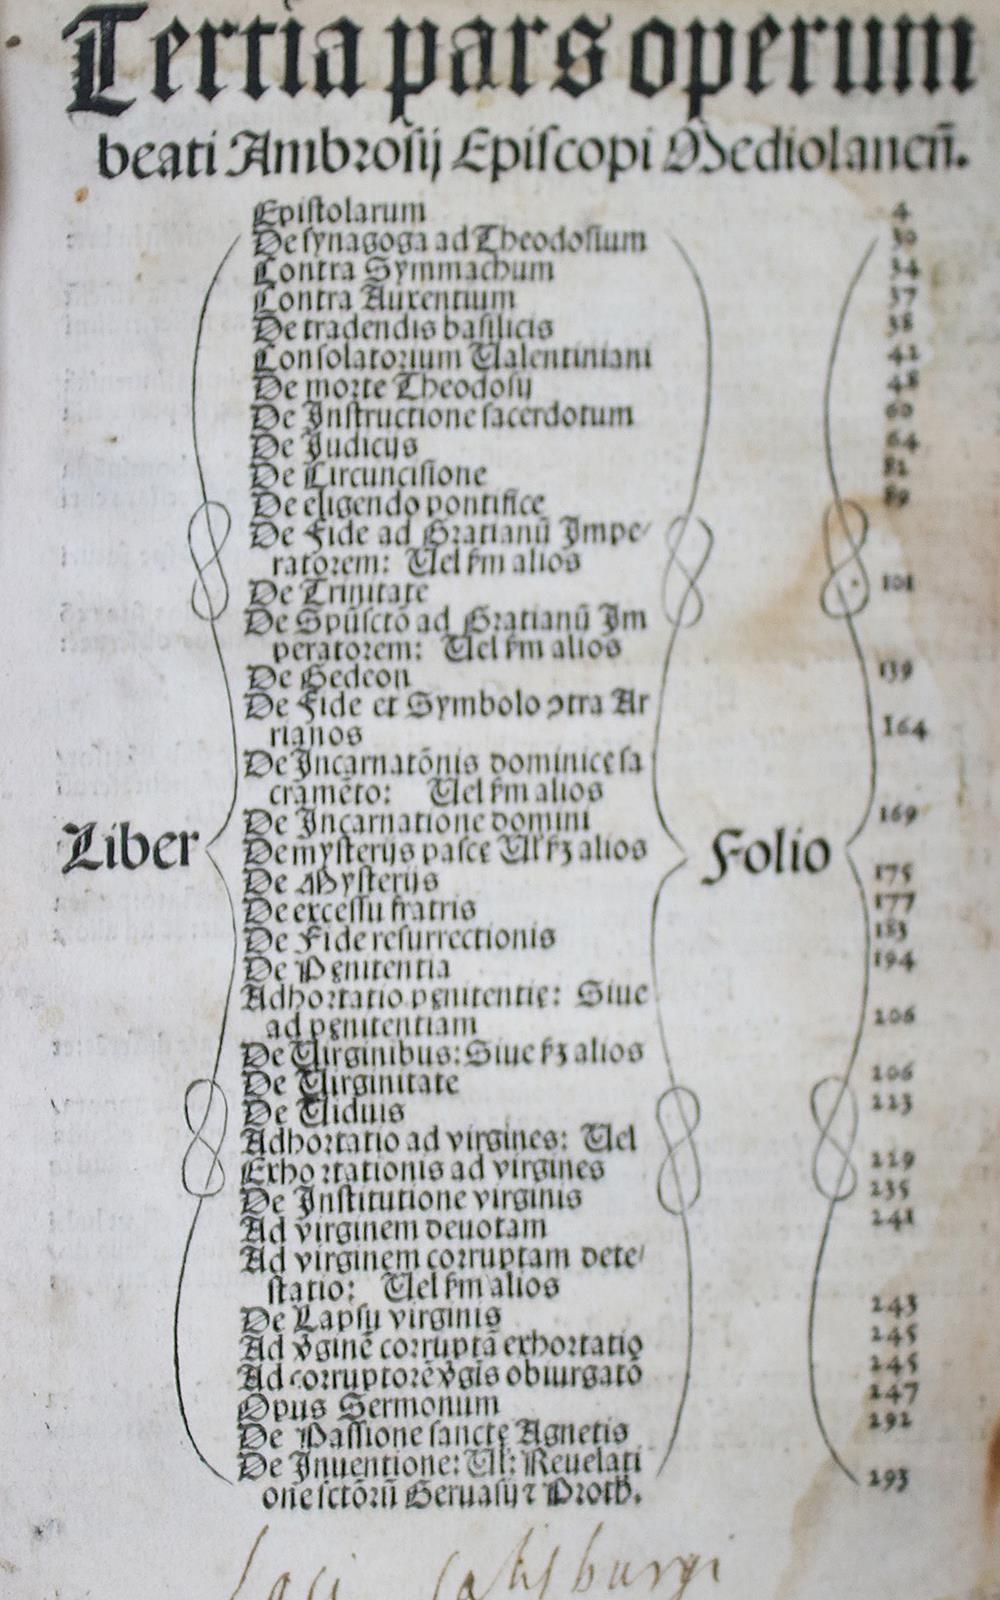 Tertia pars operum
beati Ambrosij Episcopi Mediolaneñ.
Epistolarum 4
De synagoga ad Theodosium 30
Contra Symmachum 34
Contra Auxentium 37
De tradendis basilicis 38
Consolatorium Valentiniani 42
De morte Theodosij 48
De Instructione sacerdotum 60
De Iudicijs 64
De Circuncisione 82
De eligendo pontifice 89
De Fide ad Gratianū Impe/
ratorem: Vel ẜm alios
De Trinitate 101
De Spūsctō ad Gratianū Im
peratorem: Vel ẜm alios
De Gedeon 139
De Fide et Symbolo ↄtra Ar
rianos 164
De Incarnatōnis dominicę sa
cramēto: Vel ẜm alios
De Incarnatione domini 169
De mysterijs pascę Vl' ẜꝫ alios
De Mysterijs 175
De excessu fratris 177
De Fide resurrectionis 183
De Pęnitentia 194
Adhortatio pęnitentię: Siue
ad pęnitentiam 206
De Virginibus: Siue ẜꝫ alios
De Virginitate 206
De Viduis 213
Adhortatio ad virgines: Vel
Exhortationis ad virgines 219
De Institutione virginis 235
Ad virginem deuotam 241
Ad virginem corruptam dete/
statio: Vel ẜm alios
De Lapsu virginis 243
Ad v̄ginē corruptā exhortatio 245
Ad corruptorē v̄gis obiurgatō 245
Opus Sermonum 247
De Passione sanctę Agnetis 292
De Inuentione: Vl': Reuelati
one sctōrū Geruasij ⁊ Proth. 293
Liber
Folio